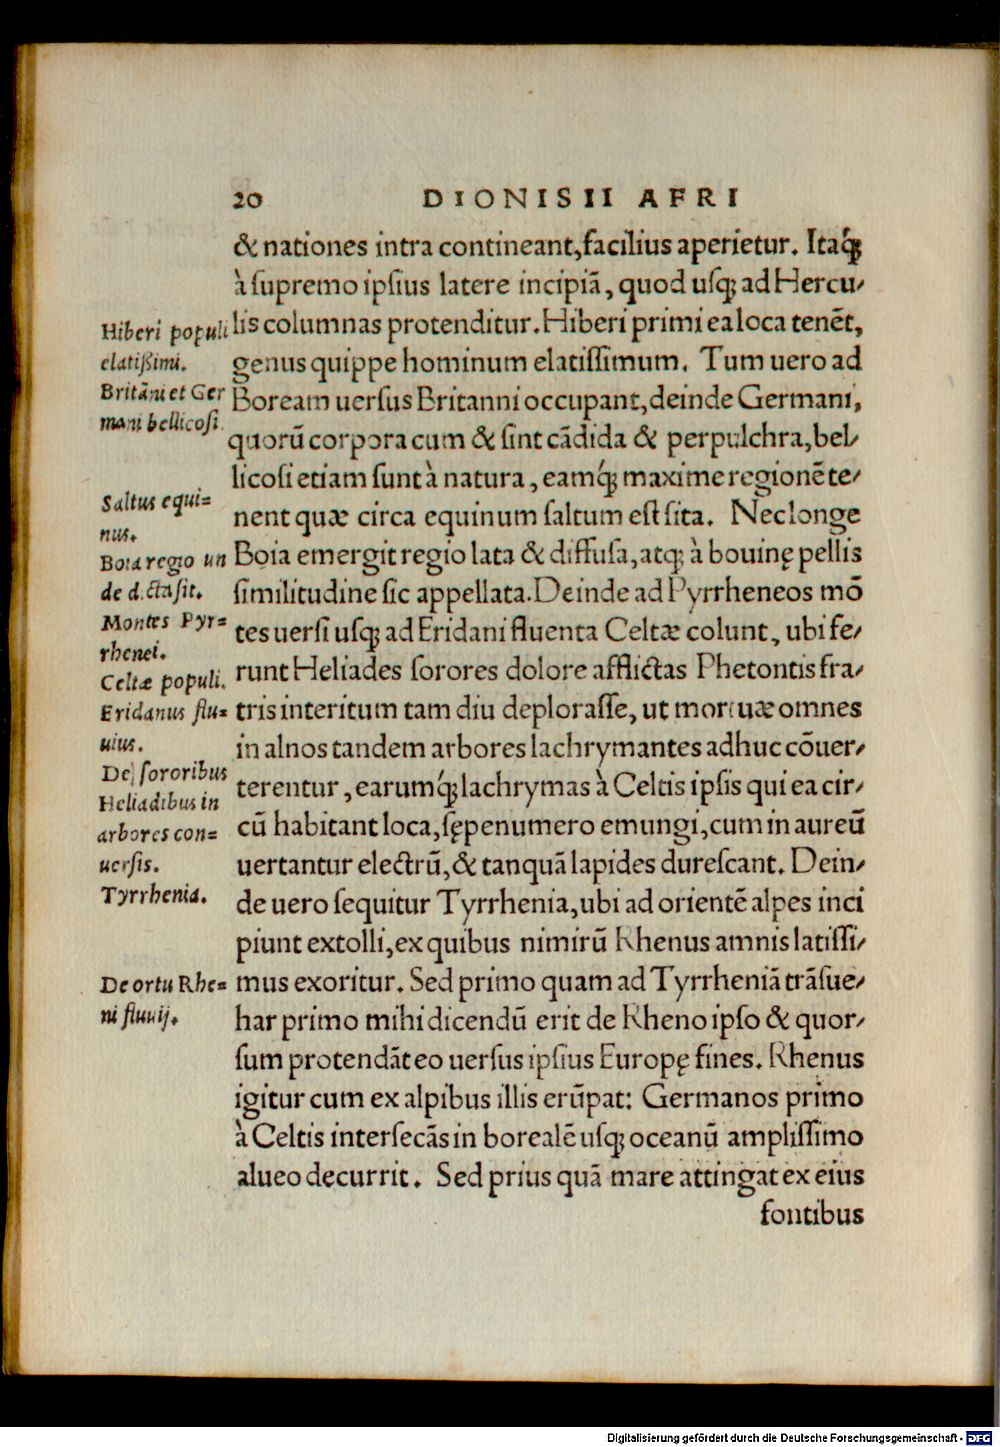 20 DIONISII AFRI
& nationes intra contineant, facilius aperietur. Itaq́;
à ſupremo ipſius latere incipiā, quod uſq; ad Hercu/
lis columnas protenditur. Hiberi primi ea loca tenēt,
genus quippe hominum elatiſſimum. Tum uero ad
Boream uerſus Britanni occupant, deinde Germani,
quorū corpora cum & ſint cādida & perpulchra, bel/
licoſi etiam ſunt à natura, eamq́; maxime regionē te/
nent quæ circa equinum ſaltum eſt ſita. Nec longe
Boia emergit regio lata & diffuſa, atq; à bouinę pellis
ſimilitudine ſic appellata. Deinde ad Pyrrheneos mō
tes uerſi uſq; ad Eridani fluenta Celtæ colunt, ubi fe/
runt Heliades ſorores dolore afflictas Phetontis fra/
tris interitum tam diu deploraſſe, ut mortuæ omnes
in alnos tandem arbores lachrymantes adhuc cōuer/
terentur, earumq́; lachrymas à Celtis ipſis qui ea cir/
cū habitant loca, ſępenumero emungi, cum in aureū
uertantur electrū, & tanquā lapides dureſcant. Dein/
de uero ſequitur Tyrrhenia, ubi ad orientē alpes inci
piunt extolli, ex quibus nimirū Rhenus amnis latiſſi/
mus exoritur. Sed primo quam ad Tyrrheniā trāſue/
har primo mihi dicendū erit de Rheno ipſo & quor/
ſum protendāt eo uerſus ipſius Europę fines. Rhenus
igitur cum ex alpibus illis erūpat: Germanos primo
à Celtis interſecās in borealē uſq; oceanū ampliſſimo
alueo decurrit. Sed prius quā mare attingat ex eius
fontibus
Hiberi populi
elatißimi.
Britāni et Ger
mani bellicoſi.
Saltus equi=
nus.
Boia regio un
de dicta ſit.
Montes Pyr=
rhenei.
Celtæ populi.
Eridanus flu=
uius.
De ſororibus
Heliadibus in
arbores con=
uerſis.
Tyrrhenia.
De ortu Rhe=
ni fluuij.
Digitalisierung gefördert durch die Deutsche Forschungsgemeinschaft - DFG